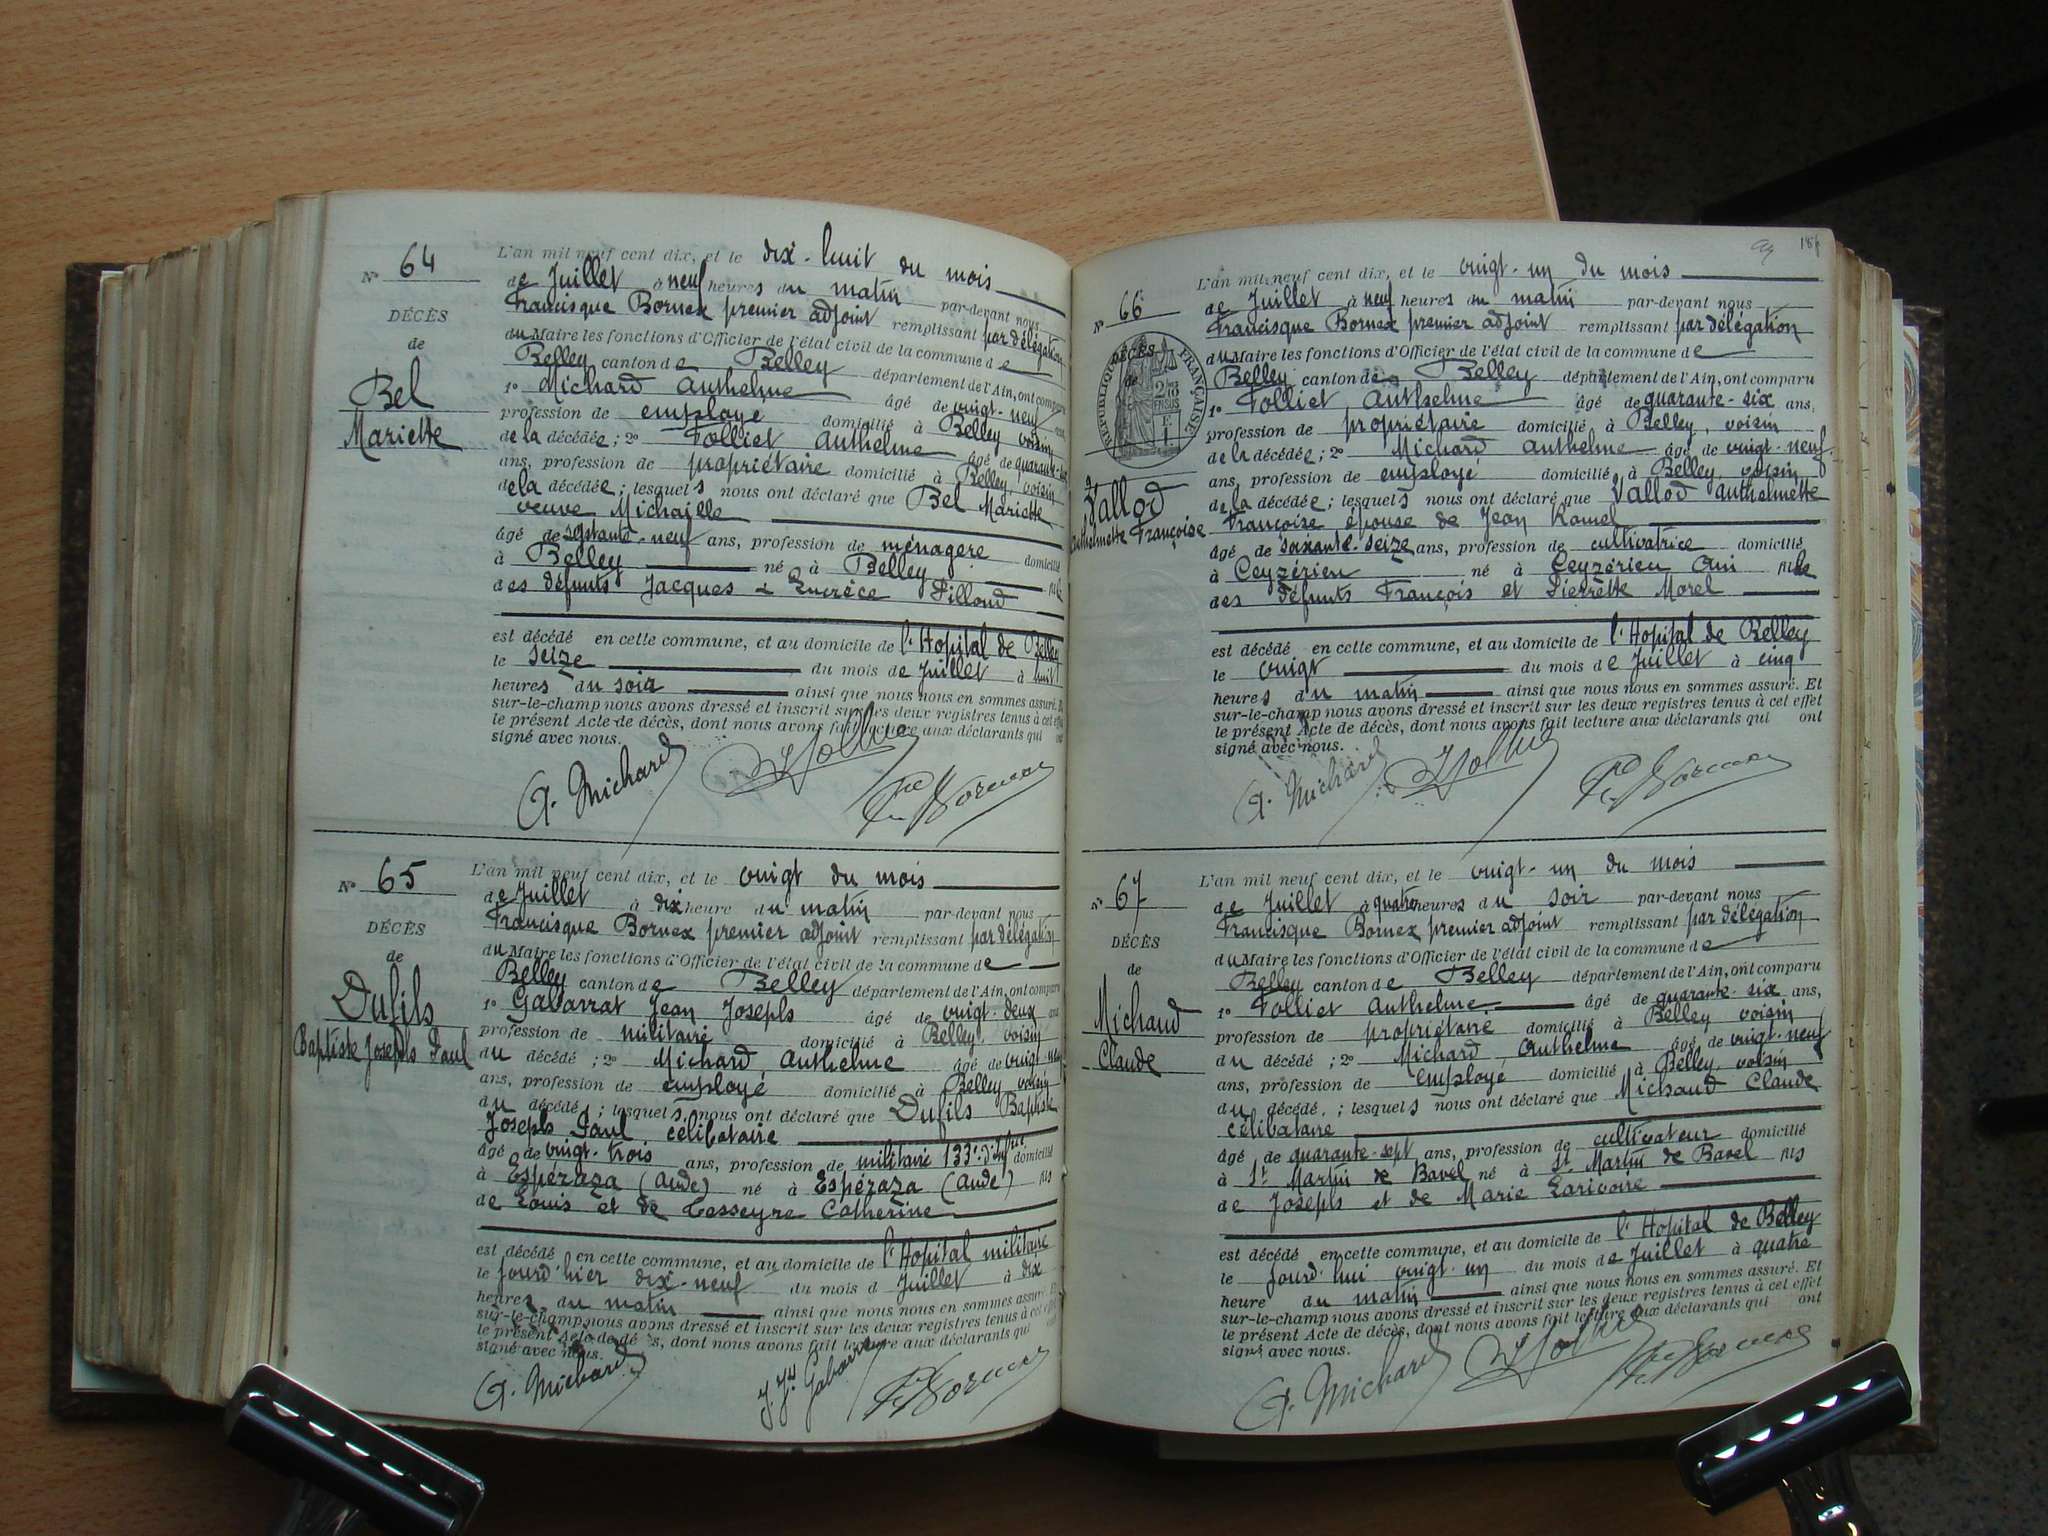 N° 64
DÉCÈS
de
Bel
Mariette
L'an mil neuf cent dix, et le dix-huit du mois
de Juillet à neuf heures du matin par-devant nous
Francisque Bornex premier adjoint remplissant par délégation
du Maire les fonctions d'Officier de l'état civil de la commune de
Belley canton de Belley département de l'Ain, ont comparu
1° Michard Anthelme âgé de vingt-neuf ans
profession de employé domicilié à Belley voisin
de la décédée; 2° Folliet Anthelme âgé de quarante-six
ans, profession de propriétaire domicilié à Belley, voisin
de la décédée; lesquels nous ont déclaré que Bel Mariette
veuve Michaille
âgé de septante-neuf ans, profession de ménagère domicilié
à Belley né à Belley fille
des défunts Jacques & Lucrèce Pilloud
est décédé en cette commune, et au domicile de l'Hopital de Belley
le seize du mois de Juillet à huit
heures du soir ainsi que nous nous en sommes assuré. Et
sur-le-champ nous avons dressé et inscrit sur les deux registres tenus à cet effet
le présent Acte de décès, dont nous avons fait lecture aux déclarants qui ont
signé avec nous.
A. Michard Folliet Fque Bornex
N° 65
DÉCÈS
de
Dufils
Baptiste Joseph Paul
L'an mil neuf cent dix, et le vingt du mois
de Juillet à dix heure du matin par-devant nous
Francisque Bornex premier adjoint remplissant par délégation
du Maire les fonctions d'Officier de l'état civil de la commune de
Belley canton de Belley département de l'Ain, ont comparu
1° Gabarrat Jean Joseph âgé de vingt-deux ans
profession de militaire domicilié à Belley, voisin
du décédé; 2° Michard Anthelme âgé de vingt-neuf
ans, profession de employé domicilié à Belley voisin
du décédé; lesquels nous ont déclaré que Dufils Baptiste
Joseph Paul, célibataire
âgé de vingt-trois ans, profession de militaire 133e d'Infrie domicilié
à Espéraza (Aude) né à Espéraza (Aude) fils
de Louis et de Tesseyre Catherine
est décédé en cette commune, et au domicile de l'Hopital militaire
le jourd'hier dix-neuf du mois d Juillet à dix
heures du matin ainsi que nous nous en sommes assuré
sur-le-champ nous avons dressé et inscrit sur les deux registres tenus à cet effet
le présent Acte de décès, dont nous avons fait lecture aux déclarants qui
signé avec nous.
A. Michard J. Jh Gabarrat Fque Bornex
93 186
N° 66
DÉCÈS
de
RÉPUBLIQUE FRANÇAISE
Vallod
Anthelmette Françoise
L'an mil neuf cent dix, et le vingt-un du mois
de Juillet à neuf heures du matin par-devant nous
Francisque Bornex premier adjoint remplissant par délégation
du Maire les fonctions d'Officier de l'état civil de la commune de
Belley canton de Belley département de l'Ain, ont comparu
1° Folliet Anthelme âgé de quarante-six ans,
profession de propriétaire domicilié à Belley, voisin
de la décédée; 2° Michard Anthelme âgé de vingt-neuf
ans, profession de employé domicilié à Belley voisin
de la décédée; lesquels nous ont déclaré que Vallod Anthelmette
Françoise épouse de Jean Ramel
âgé de soixante-seize ans, profession de cultivatrice domicilié
à Ceyzérieu né à Ceyzérieu Ain fille
des défunts François et Pierrette Morel
est décédé en cette commune, et au domicile de l'Hopital de Belley
le vingt du mois de Juillet à cinq
heures du matin ainsi que nous nous en sommes assuré. Et
sur-le-champ nous avons dressé et inscrit sur les deux registres tenus à cet effet
le présent Acte de décès, dont nous avons fait lecture aux déclarants qui ont
signé avec nous.
A. Michard Folliet Fque Bornex
N° 67
DÉCÈS
de
Michaud
Claude
L'an mil neuf cent dix, et le vingt-un du mois
de Juillet à quatre heures du soir par-devant nous
Francisque Bornex premier adjoint remplissant par délégation
du Maire les fonctions d'Officier de l'état civil de la commune de
Belley canton de Belley département de l'Ain, ont comparu
1° Folliet Anthelme âgé de quarante-six ans,
profession de propriétaire domicilié à Belley voisin
du décédé; 2° Michard Anthelme âgé de vingt-neuf
ans, profession de employé domicilié à Belley, voisin
du décédé; lesquels nous ont déclaré que Michaud Claude
célibataire
âgé de quarante-sept ans, profession de cultivateur domicilié
à St Martin de Bavel né à St Martin de Bavel fils
de Joseph et de Marie Larivoire
est décédé en cette commune, et au domicile de l'Hopital de Belley
le jourd'hui vingt-un du mois de Juillet à quatre
heure du matin ainsi que nous nous en sommes assuré. Et
sur-le-champ nous avons dressé et inscrit sur les deux registres tenus à cet effet
le présent Acte de décès, dont nous avons fait lecture aux déclarants qui ont
signé avec nous.
A. Michard Folliet Fque Bornex